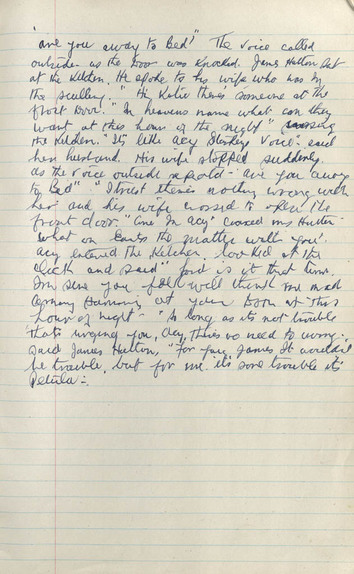 "are you away to Bed" The voice called
outside as the Door was Knocked. James Hutton sat
at the Kitchen. He spoke to his wife who was in
the scullery. "Hi Katie theres someone at the
front Door." "In heavens name what can they
want at this hour of the night"
the Kitchen. "Its little acy voice" said
her husband. His wife stopped suddenly
as the voice outside repeated - are you away
to Bed" "I trust theres nothing wrong with
her and his wife crossed to open the
front door. "Come In acy" coaxed mrs Hutton -
what on Earth's the matter with you".
acy entered the Kitchen, looked at the
clock and said" is it that time.
Im sure you folk will think me mad
coming at your Door at this
hour of night" - "As long as its not trouble
thats urging you, acy, theres no need to worry -
said James Hutton, "For you, James It wouldn't
be trouble, but for me its sore trouble its
Petula -.